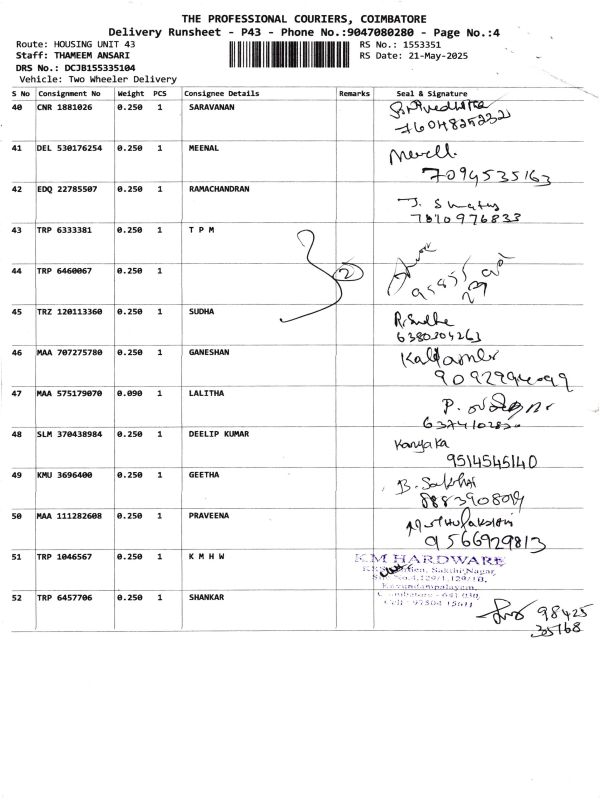 THE PROFESSIONAL COURIERS, COIMBATORE
Delivery Runsheet - P43 - Phone No.:9047080280 - Page No.:4
Route: HOUSING UNIT 43 RS No.: 1553351
Staff: THAMEEM ANSARI RS Date: 21-May-2025
DRS No.: DCJB155335104
Vehicle: Two Wheeler Delivery
S No Consignment No Weight PCS Consignee Details Remarks Seal & Signature
40 CNR 1881026 0.250 1 SARAVANAN
7604825232
41 DEL 530176254 0.250 1 MEENAL
7094535163
42 EDQ 22785507 0.250 1 RAMACHANDRAN
7810976833
43 TRP 6333381 0.250 1 T P M
44 TRP 6460067 0.250 1 2
45 TRZ 120113360 0.250 1 SUDHA R. Sudha
6380304263
46 MAA 707275780 0.250 1 GANESHAN
47 MAA 575179070 0.090 1 LALITHA
48 SLM 370438984 0.250 1 DEELIP KUMAR Kanyaka
9514545140
49 KMU 3696400 0.250 1 GEETHA B. Sakthi
50 MAA 111282608 0.250 1 PRAVEENA
9566929813
51 TRP 1046567 0.250 1 K M H W KM HARDWARE
Sakthi Nagar,
Kavundampalayam,
Coimbatore - 641 030.
52 TRP 6457706 0.250 1 SHANKAR 98425
35768